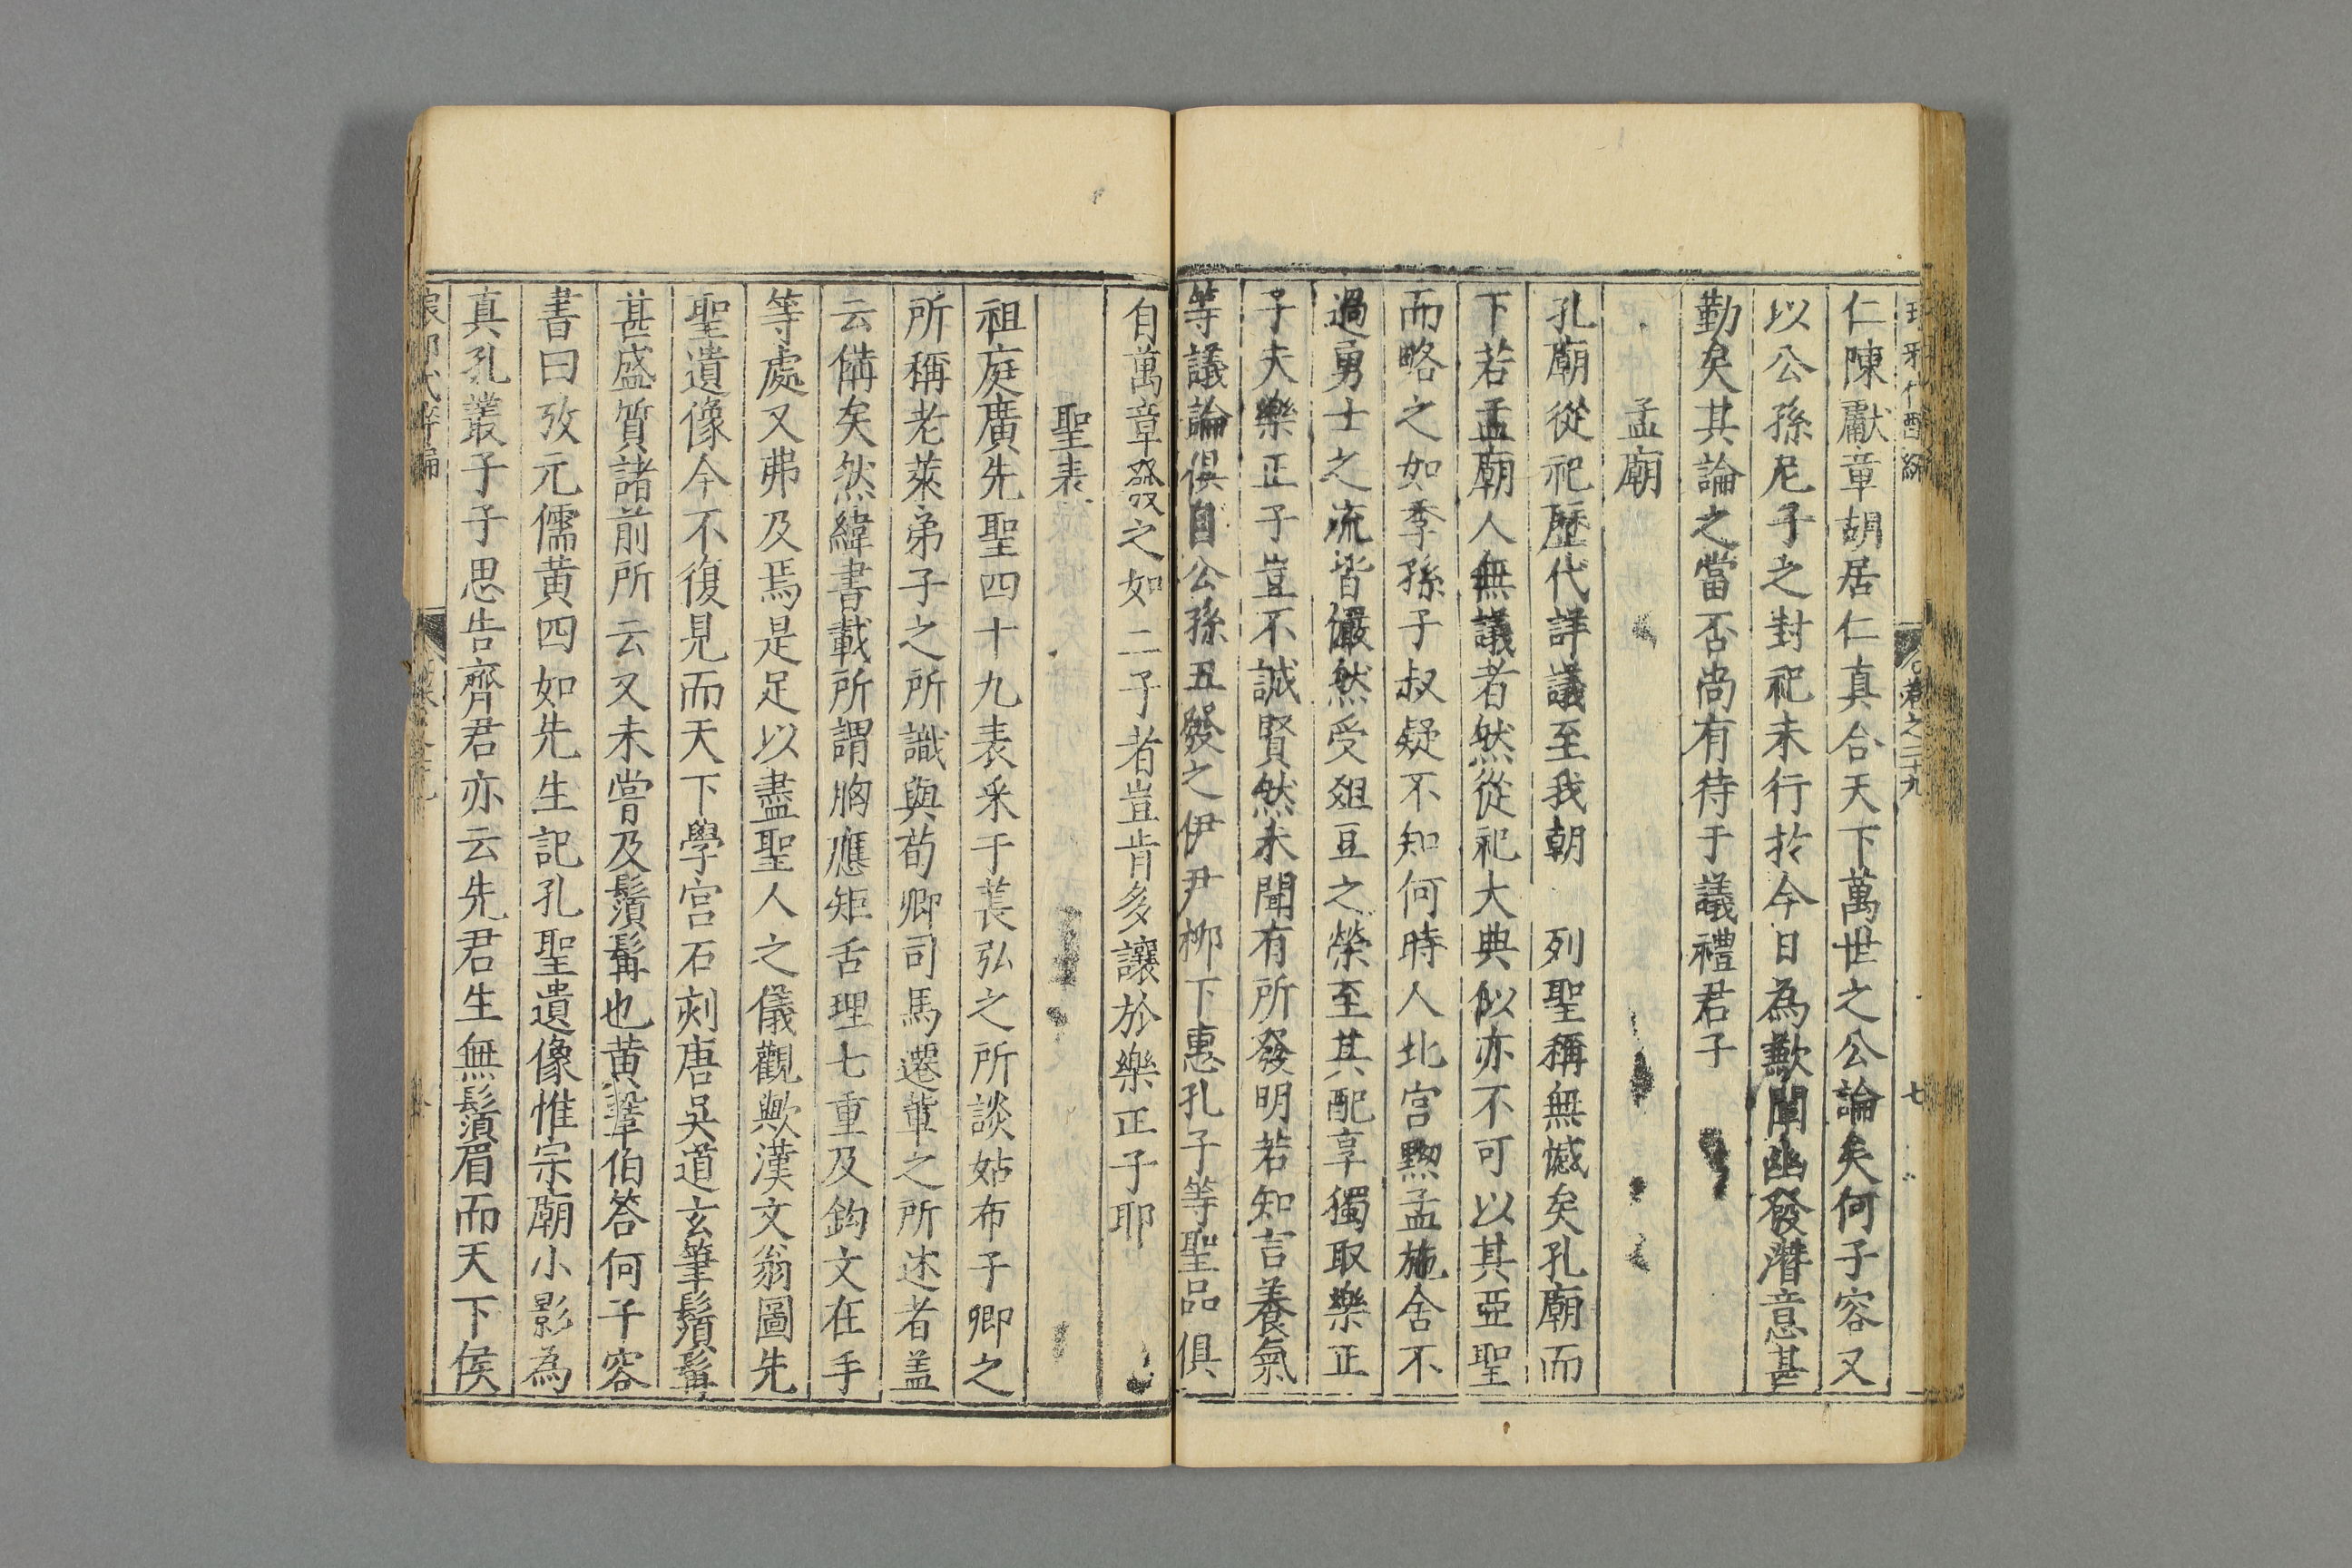 卷之二十九
七
仁陳獻章胡居仁真合天下萬世之公論矣何子容又
以公孫尼子之對祀未行於今日為歉闡幽發潛意甚
勤矣其論之當否尚有待于議禮君子
孟廟
孔廟從祀歷代詳議至我朝 列聖稱無憾矣孔廟而
下若孟廟人無議者然從祀大典似亦不可以其亞聖
而略之如季孫子叔疑不知何時人北宮黝孟施舍不
過勇士之流皆儼然受俎豆之榮至其配享獨取樂正
子夫樂正子豈不誠賢然未聞有所發明若知言養氣
等議論俱自公孫丑發之伊尹柳下惠孔子等聖品俱
自萬章發之如二子者豈肯多讓於樂正子耶
聖表
祖庭廣先聖四十九表采于萇弘之所談姑布子卿之
所稱老萊弟子之所識與荀卿司馬遷輩之所述者盖
云備矣然緯書載所謂胸應矩舌理七重及鈎文在手
等處又弗及焉是足以盡聖人之儀觀歟漢文翁圖先
聖遺像今不復見而天下學宮石刻唐吳道玄筆鬚髯
甚盛質諸前所云又未嘗及鬚髯也黄鞏伯答何子容
書曰攷元儒黄四如先生記孔聖遺像惟宗廟小影為
真孔叢子子思告齊君亦云先君生無鬚眉而天下侯